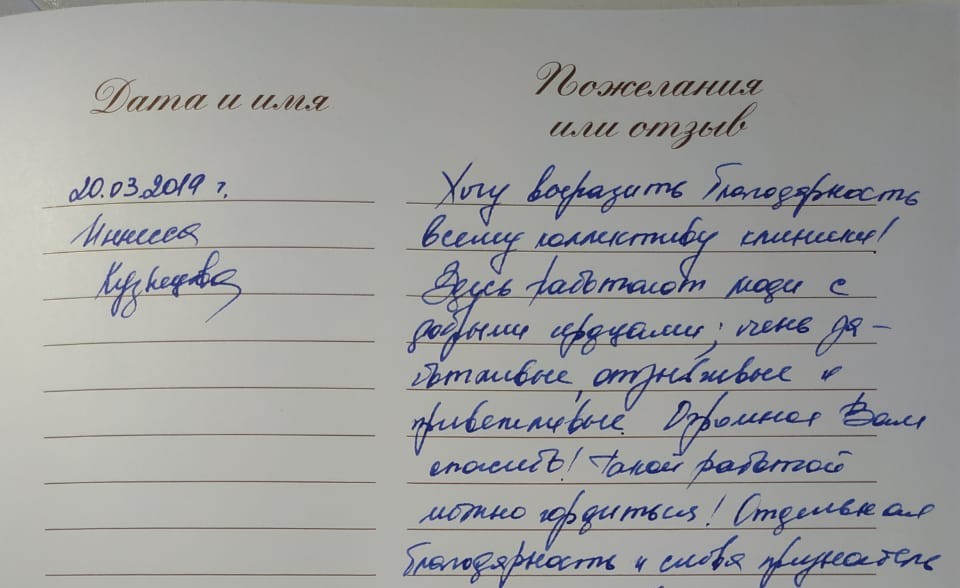 Дата и имя
Пожелания
или отзыв
20.03.2019 г.
Инесса
Кузнецова
Хочу выразить благодарность
всему коллективу клиники!
Здесь работают люди с
добрыми сердцами; очень за-
ботливые, отзывчивые и
приветливые. Огромное Вам
спасибо! Такой работой
можно гордиться! Отдельная
благодарность и слова признатель